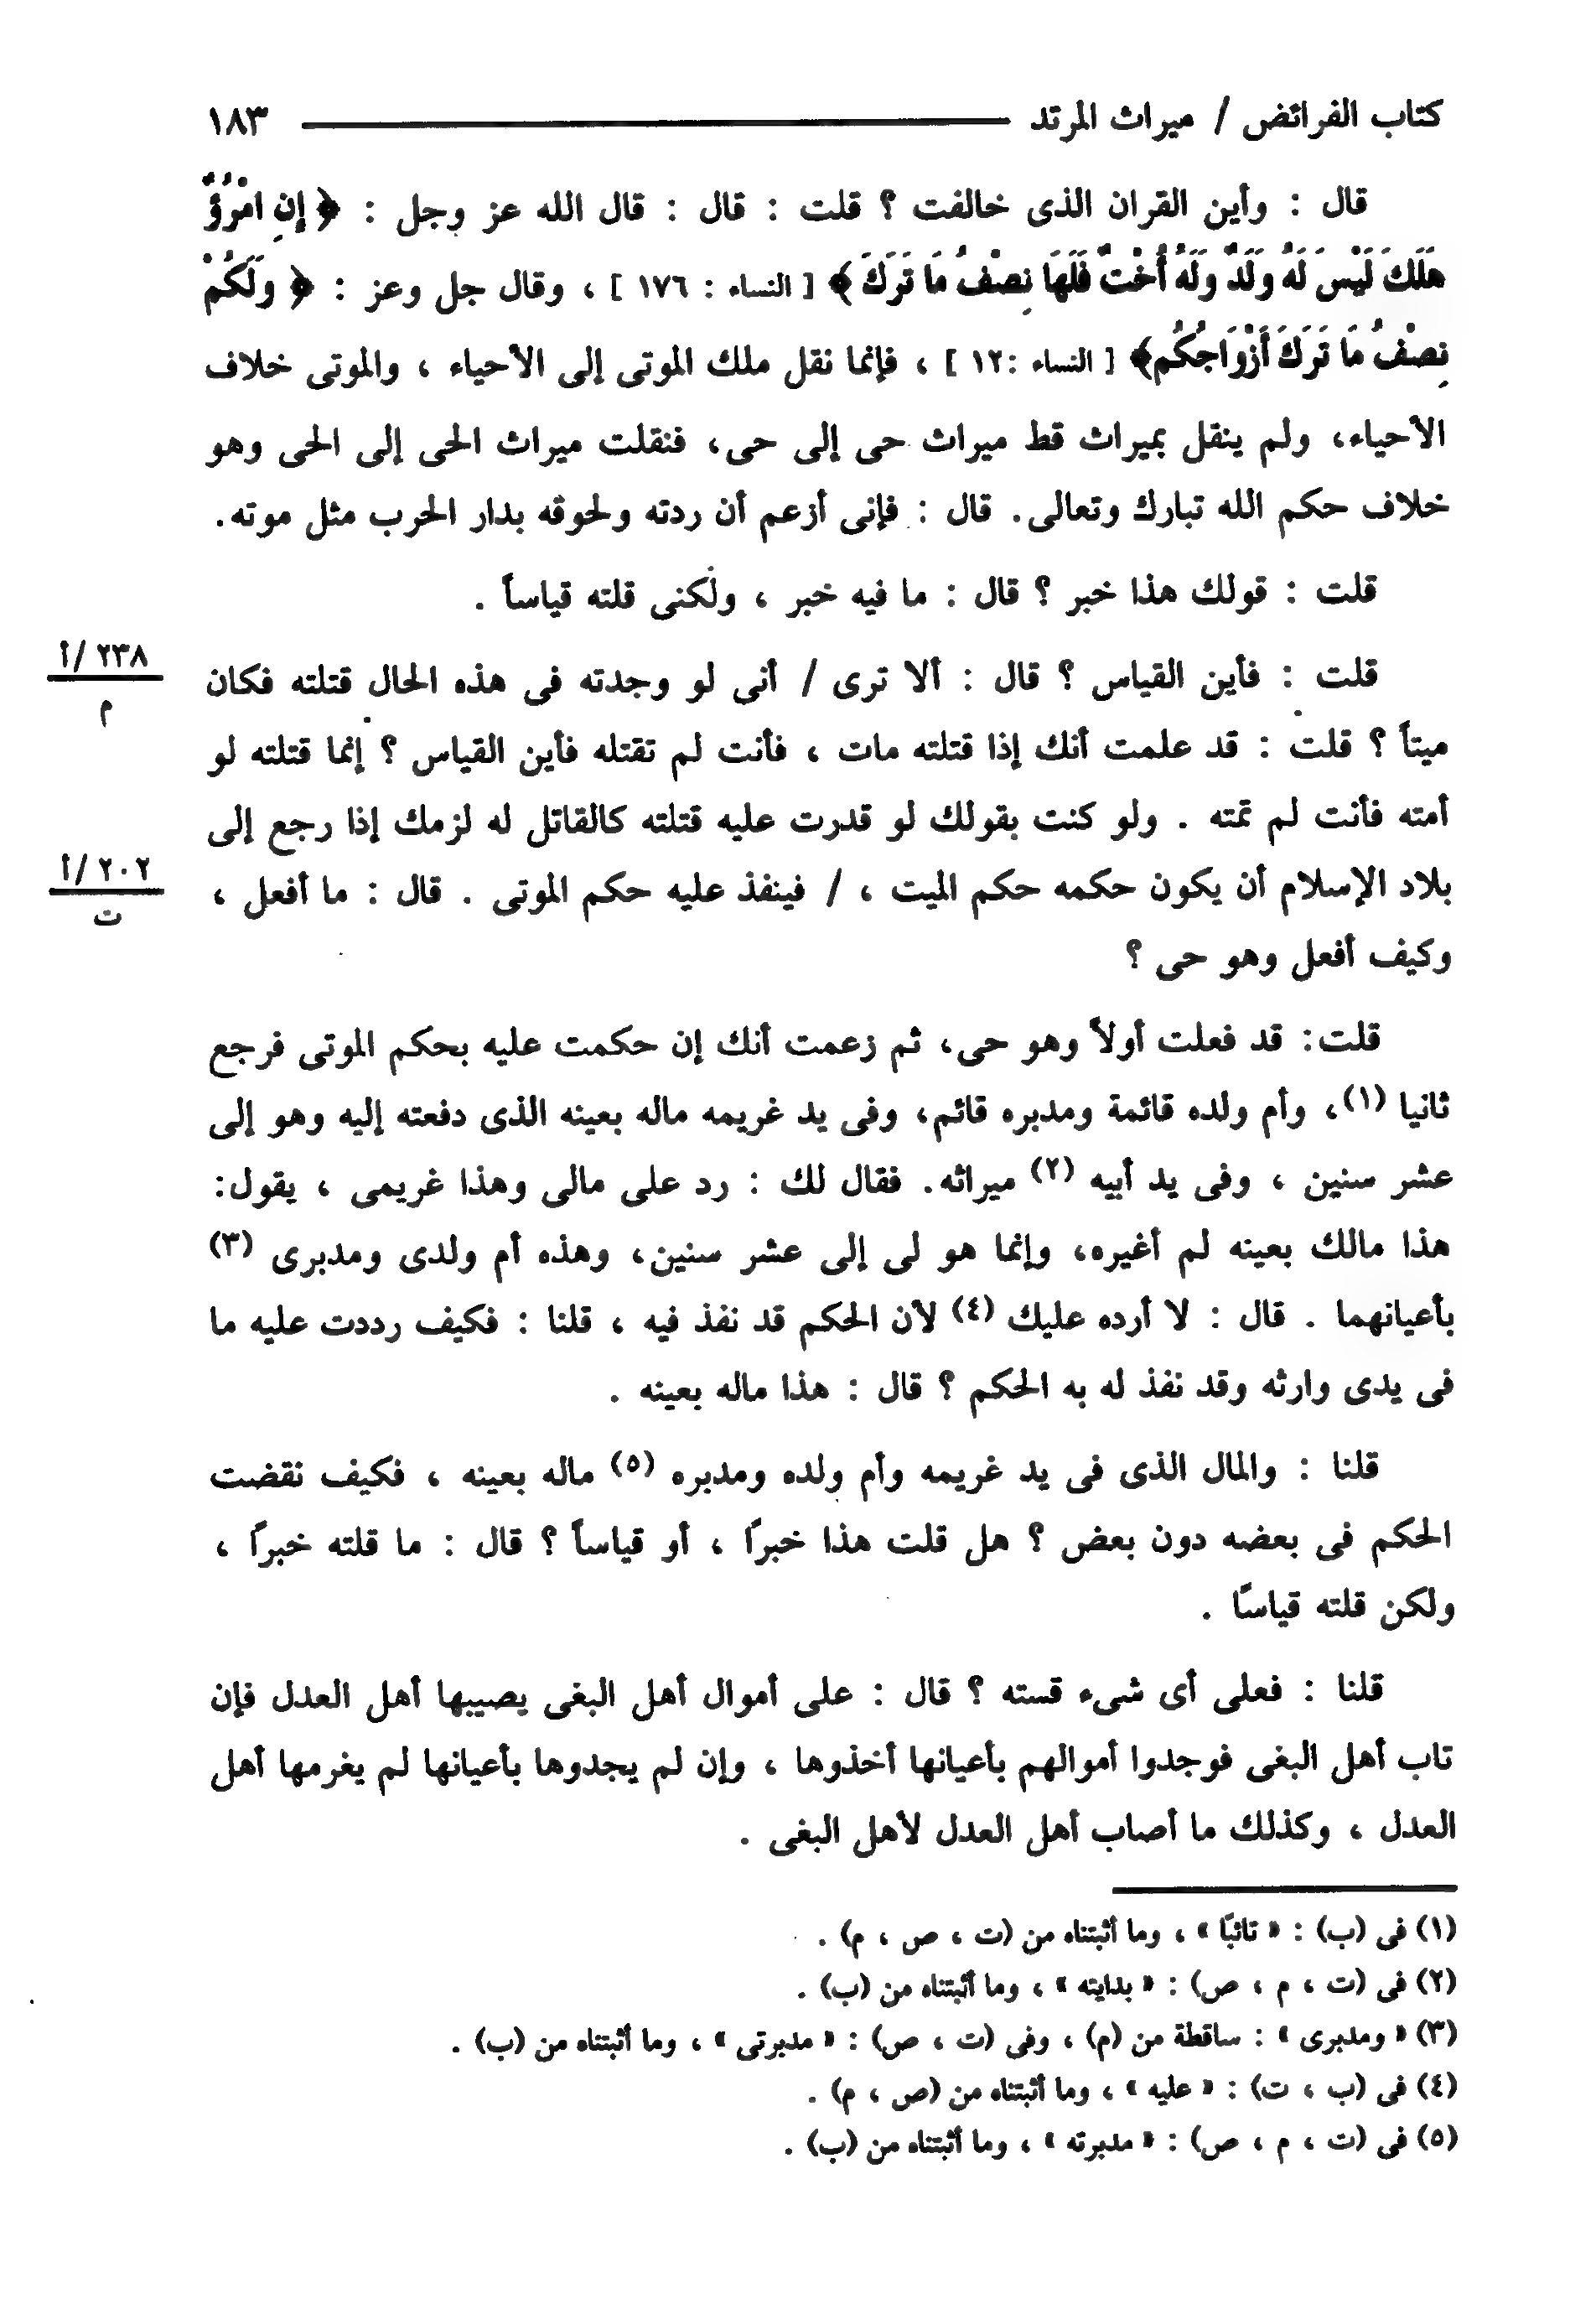 كتاب الفرائض / ميراث المرتد ١٨٣
قال : وأين القران الذى خالفت ؟ قلت : قال : قال الله عز وجل : ﴿ إِنِ امْرُؤٌ
هَلَكَ لَيْسَ لَهُ وَلَدٌ وَلَهُ أُخْتٌ فَلَهَا نِصْفُ مَا تَرَكَ ﴾ [ النساء : ١٧٦ ] ، وقال جل وعز : ﴿ وَلَكُمْ
نِصْفُ مَا تَرَكَ أَزْوَاجُكُمْ﴾ [ النساء :١٢ ] ، فإنما نقل ملك الموتى إلى الأحياء ، والموتى خلاف
الأحياء، ولم ينقل بميراث قط ميراث حى إلى حى، فنقلت ميراث الحى إلى الحى وهو
خلاف حكم الله تبارك وتعالى. قال : فإنى أزعم أن ردته ولحوقه بدار الحرب مثل موته.
قلت : قولك هذا خبر ؟ قال : ما فيه خبر ، ولكنى قلته قياساً .
قلت : فأين القياس ؟ قال : ألا ترى / أنى لو وجدته فى هذه الحال قتلته فكان
٢٣٨ /أ
م
ميتاً ؟ قلت : قد علمت أنك إذا قتلته مات ، فأنت لم تقتله فأين القياس ؟ إنما قتلته لو
أمته فأنت لم تمته . ولو كنت بقولك لو قدرت عليه قتلته كالقاتل له لزمك إذا رجع إلى
بلاد الإسلام أن يكون حكمه حكم الميت ، / فينفذ عليه حكم الموتى . قال : ما أفعل ،
٢٠٢ /أ
ت
وكيف أفعل وهو حى ؟
قلت: قد فعلت أولاً وهو حى، ثم زعمت أنك إن حكمت عليه بحكم الموتى فرجع
ثانيا (١)، وأم ولده قائمة ومدبره قائم، وفى يد غريمه ماله بعينه الذى دفعته إليه وهو إلى
عشر سنين ، وفى يد أبيه (٢) ميراثه. فقال لك : رد على مالى وهذا غريمى ، يقول:
هذا مالك بعينه لم أغيره، وإنما هو لى إلى عشر سنين، وهذه أم ولدى ومدبرى (٣)
بأعيانهما . قال : لا أرده عليك (٤) لأن الحكم قد نفذ فيه ، قلنا : فكيف رددت عليه ما
فى يدى وارثه وقد نفذ له به الحكم ؟ قال : هذا ماله بعينه .
قلنا : والمال الذى فى يد غريمه وأم ولده ومدبره (٥) ماله بعينه ، فكيف نقضت
الحكم فى بعضه دون بعض ؟ هل قلت هذا خبرًا ، أو قياساً ؟ قال : ما قلته خبرًا ،
ولكن قلته قياسًا .
قلنا : فعلى أى شىء قسته ؟ قال : على أموال أهل البغى يصيبها أهل العدل فإن
تاب أهل البغى فوجدوا أموالهم بأعيانها أخذوها ، وإن لم يجدوها بأعيانها لم يغرمها أهل
العدل ، وكذلك ما أصاب أهل العدل لأهل البغى .
(١) فى (ب) : « تائبًا » ، وما أثبتناه من (ت ، ص ، م) .
(٢) فى (ت ، م ، ص) : « بدايته » ، وما أثبتناه من (ب) .
(٣) « ومدبرى » : ساقطة من (م) ، وفى (ت ، ص) : « مدبرتى » ، وما أثبتناه من (ب) .
(٤) فى (ب ، ت) : « عليه » ، وما أثبتناه من (ص ، م) .
(٥) فى (ت ، م ، ص) : « مدبرته » ، وما أثبتناه من (ب) .